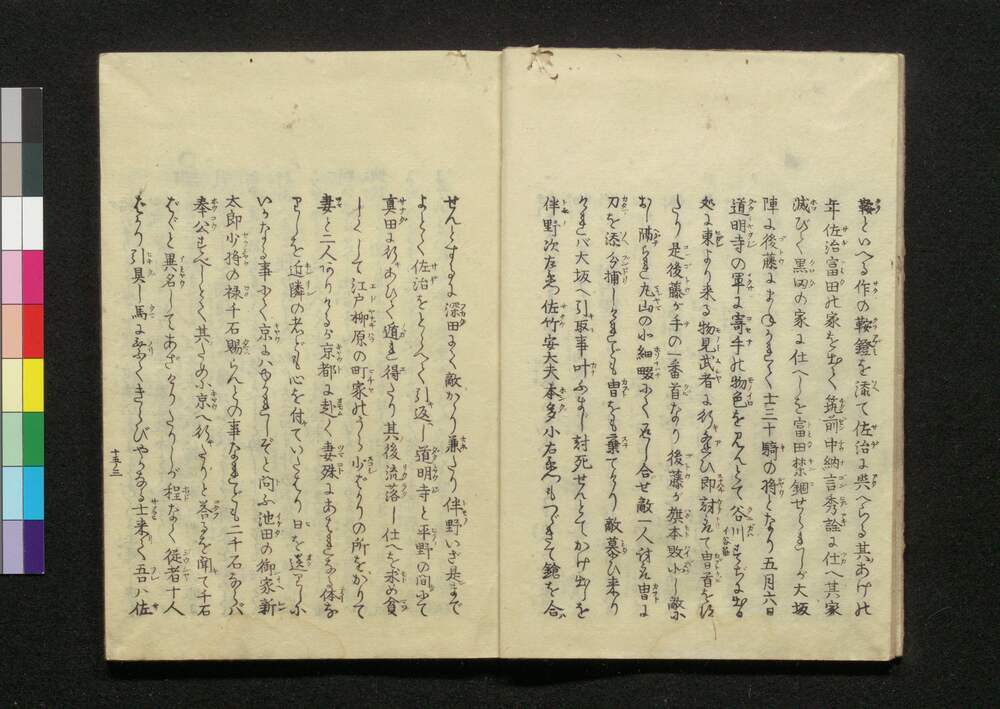 鞍といへる作の鞍鐙を添て佐治に與へらる其あけの
年佐治富田の家を出て筑前中納言秀詮に仕へ其家
滅びて黒田の家に仕へしを富田禁錮せられしが大坂
陣に後藤にまねかれて士三十騎の将となり五月六日
道明寺の軍に寄手の物色を見んとて谷川すぢに出る
処に東より来る物見武者に行あひ即刻にて冑首を得
たり是後藤が手の一番首なり後藤が旗本敗北し敵に
おし隔られ丸山の小細畷にて返し合せ敵一人討て冑に
刀を添分捕しけれども冑をも棄てけり敵慕ひ来り
ければ大坂へ引取事叶ふまじ討死せんとてかけ出しを
伴野次左衛門佐竹安大夫本多小右衛門もつづきて鎗を合
せんとするに深田にて敵かゝり兼たり伴野いざ是まで
よとて佐治をとらへて引返し道明寺と平野の間にて
真田に行あひて遁れ得たり其後流落し仕へを求め食
しくして江戸柳原の町家のうら少ばかりの所をかりて
妻と二人ありけるが京都に赴く妻殊にあはれなる体な
りしを近隣の者ども心を付ていたはり日を送りしに
いかなる事にて京にハゆかれしぞと問ふ池田の御家新
太郎少将の禄千石賜らんとの事なれども二千石ならバ
奉公すべしとて其ために京へ行たりと答るを聞て千石
ばゞと異名してあざけりたりしが程なく従者十人
ばかり引具し馬に乗てきらびやかなる士来て吾ハ佐
十五ノ三